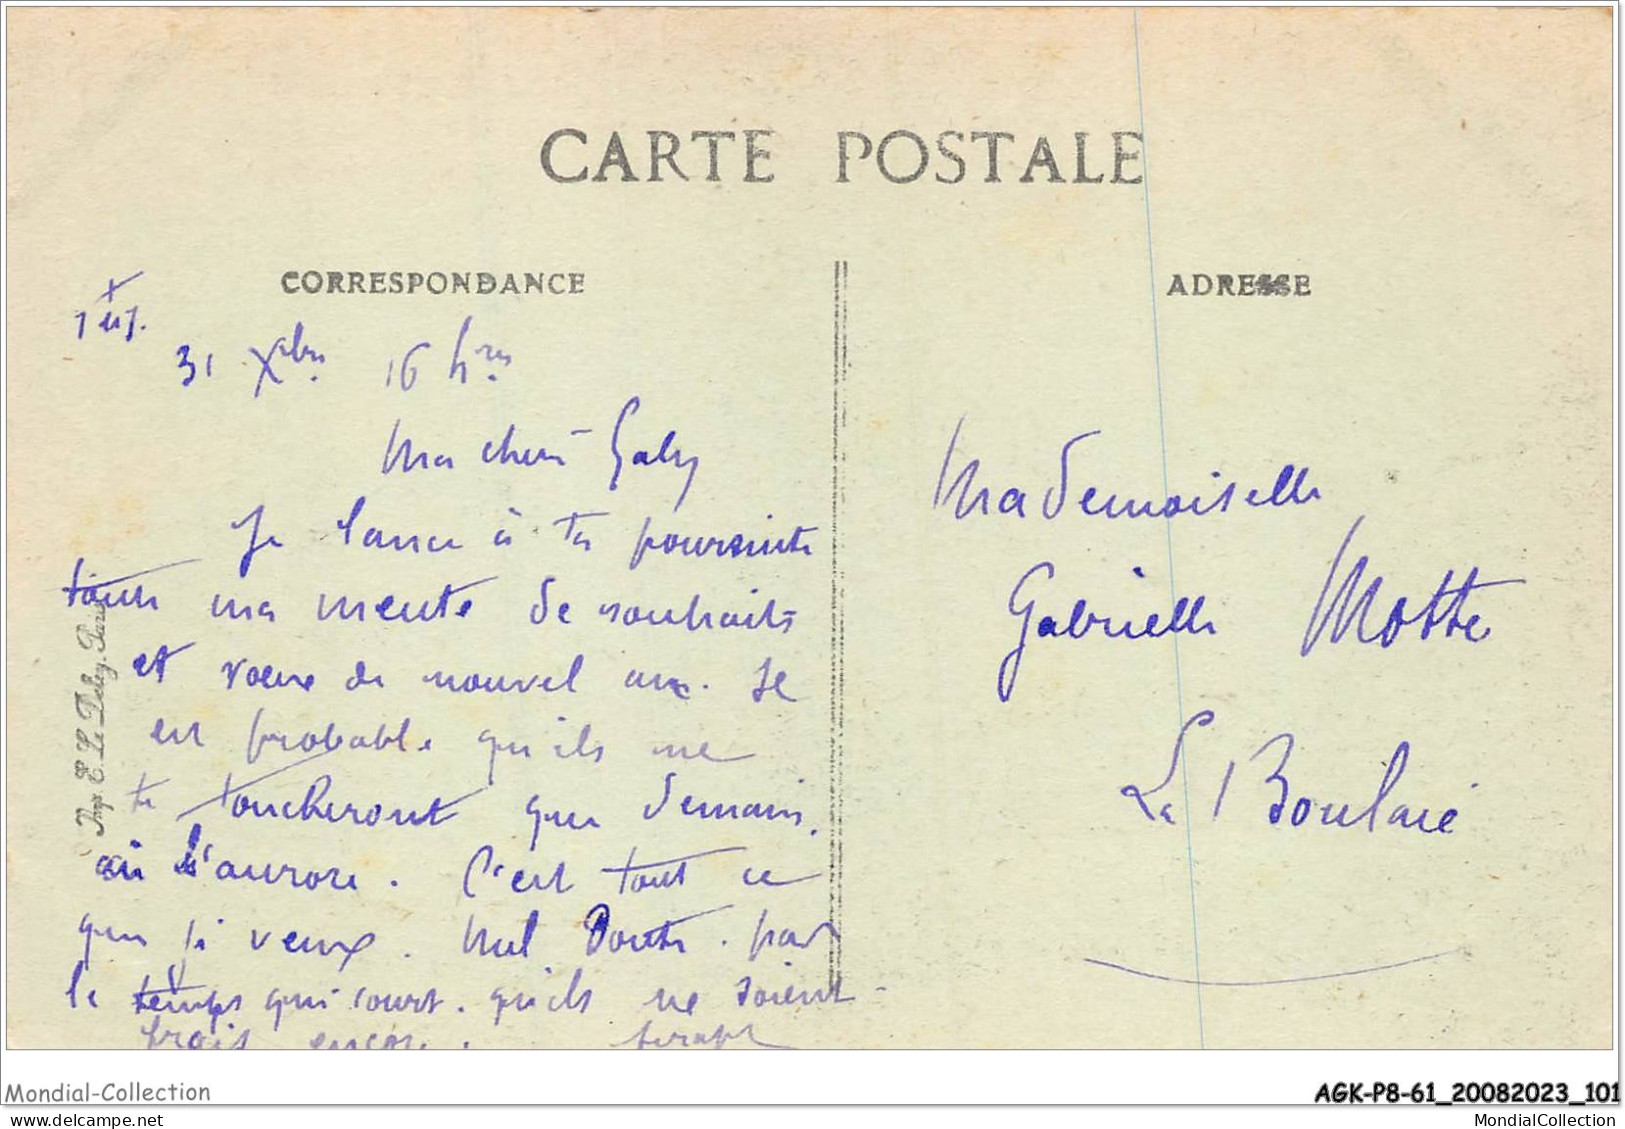 CARTE POSTALE
CORRESPONDANCE
31 Xbre 16 hres
Ma chère Gaby
Je lance à ta poursuite
toute ma meute de souhaits
et voeux de nouvel an. Il
est probable qu'ils ne
te toucheront que demain.
à l'aurore. C'est tout ce
que je veux. Nul doute. par
le temps qui court. qu'ils ne soient
frais encore.
Imp. E. Le Deley, Paris
ADRESSE
Mademoiselle
Gabrielle Motte
La Boulaie
Mondial-Collection
AGK-P8-61_20082023_101
Mondial-Collection du site
MondialCollection